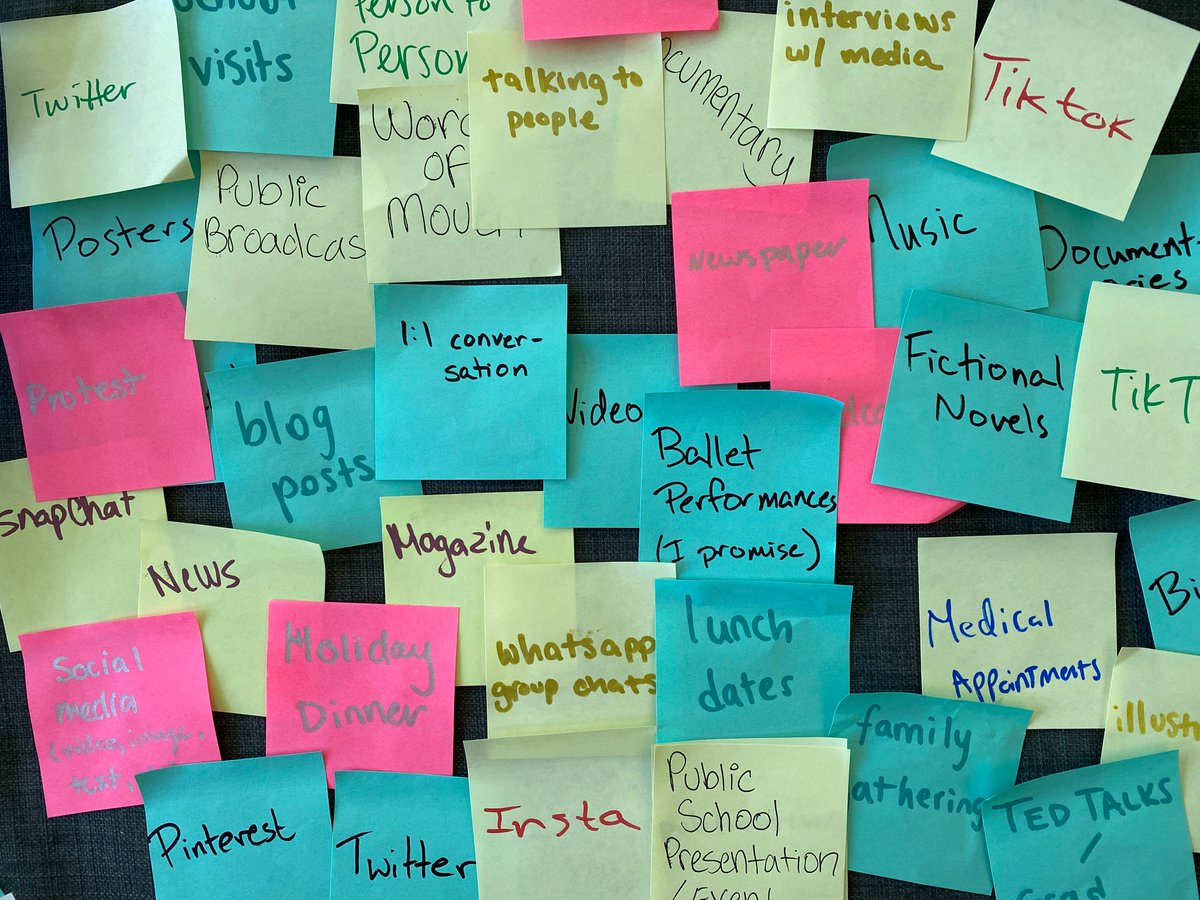 Twitter
visits
Person to
Person
talking to
people
Documentary
interviews
w/ media
Tiktok
Posters
Public
Broadcas
Word
of
Mouth
Newspaper
Music
Document-
aries
Protest
blog
posts
1:1 conver-
sation
Video
Ballet
Performances
(I promise)
Fictional
Novels
TikT
Snapchat
News
Magazine
Social
media
(video, image,
text,
Holiday
Dinner
Whatsapp
group chats
lunch
dates
Medical
Appointments
Pinterest
Twitter
Insta
Public
School
Presentation
/Event
family
gathering
illustr
TED TALKS
/